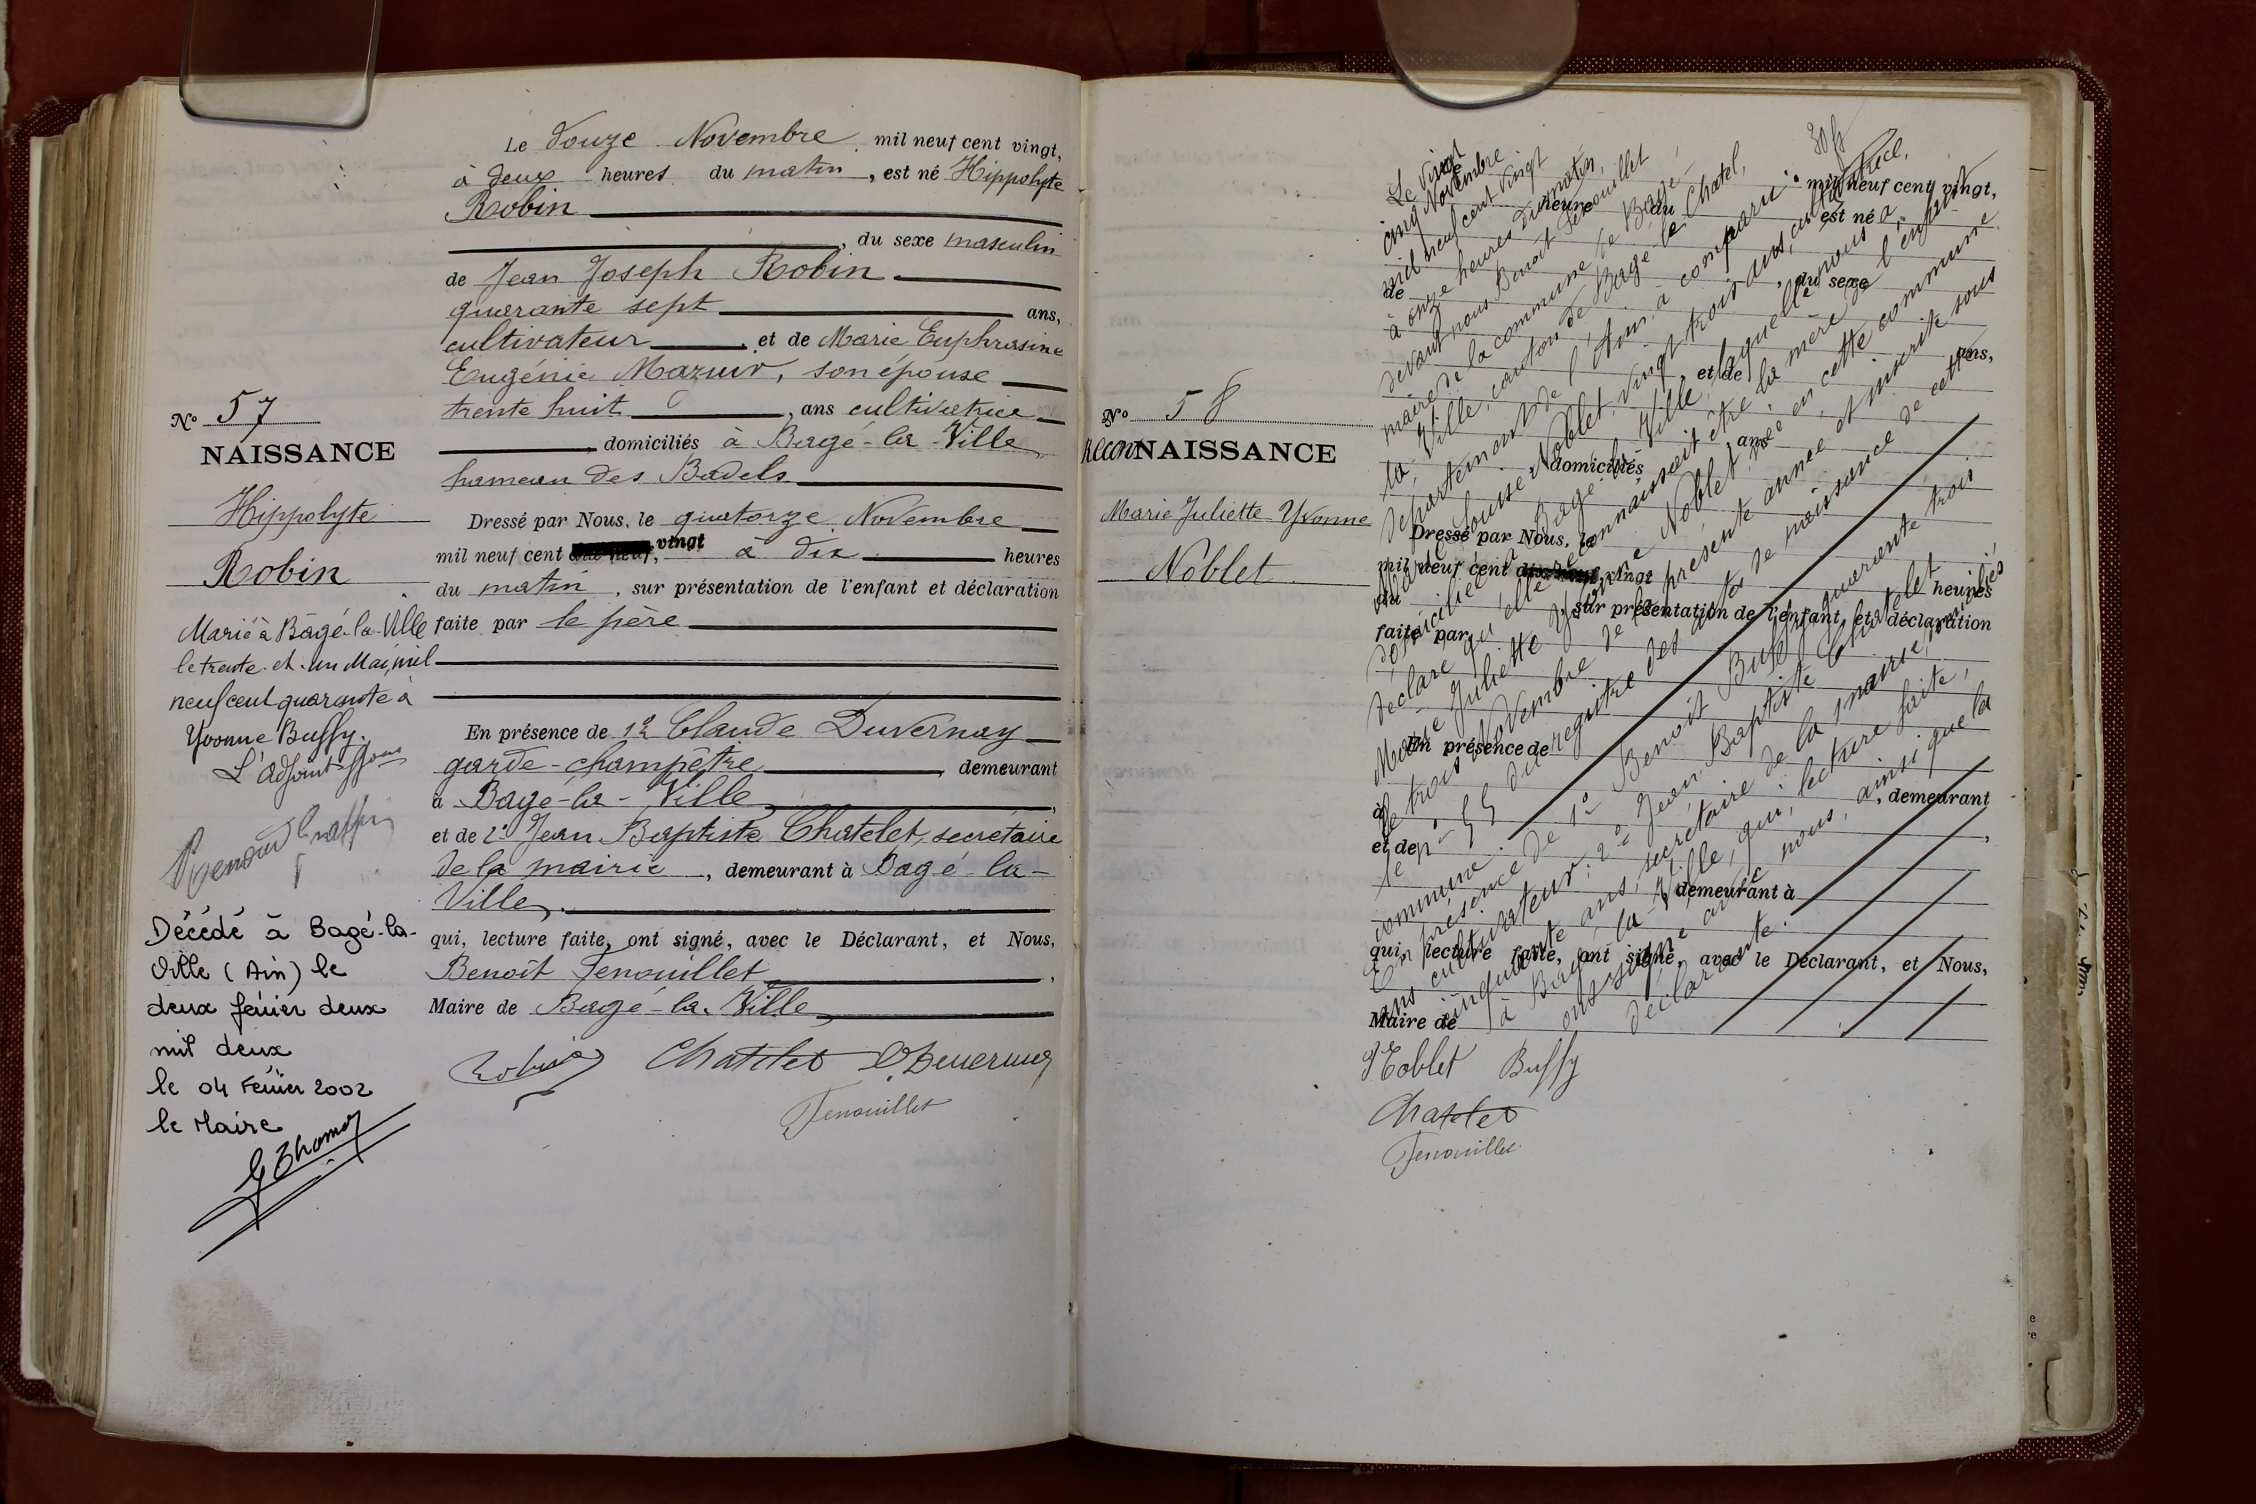 Le douze Novembre, mil neuf cent vingt,
à deux heures du matin, est né Hippolyte
Robin
, du sexe masculin
de Jean Joseph Robin
quarante sept ans,
cultivateur et de Marie Euphrasine
Eugénie Mazuir, son épouse
trente huit, ans cultivatrice
domiciliés à Bagé-la-Ville
hameau des Badels
Dressé par Nous, le quatorze Novembre
mil neuf cent vingt à dix heures
du matin, sur présentation de l'enfant et déclaration
faite par le père
En présence de 1º Claude Duvernay
garde-champêtre, demeurant
à Bagé-la-Ville,
et de 2º Jean Baptiste Chatelet, secrétaire
de la mairie, demeurant à Bagé-la-
Ville,
qui, lecture faite, ont signé, avec le Déclarant, et Nous,
Benoît Fenouillet,
Maire de Bagé-la-Ville,
Robin Chatelet C. Duvernay
Fenouillet
Nº 57
NAISSANCE
Hippolyte
Robin
Marié à Bagé-la-Ville
le trente-et-un Mai, mil
neuf cent quarante à
Yvonne Buffy.
L'adjoint
Décédé à Bagé-la-
Ville (Ain) le
deux février deux
mil deux
le 04 Février 2002
le Maire
G Thomas
Nº 58
ReconNAISSANCE
Marie Juliette Yvonne
Noblet
Le vingt
cinq Novembre
mil neuf cent vingt
à onze heures du matin,
devant nous Benoît Fenouillet
maire de la commune de Bagé-
la-Ville, canton de Bagé-le-Chatel,
département de l'Ain, a comparu:
Noblet, vingt trois ans, cultivatrice,
domiciliée à Bagé-la-Ville, laquelle nous a
déclaré qu'elle reconnaissait être la mère de l'enfant
Marie Juliette Yvonne Noblet, née en cette commune
le trois Novembre de la présente année et inscrite sous
le nº 55 du registre des actes de naissance de cette
commune.
En présence de 1º Benoît Buffy, quarante trois
ans cultivateur; 2º Jean Baptiste Chatelet
cinquante ans, secrétaire de la mairie, domiciliés
à Bagé-la-Ville, qui, lecture faite,
ont signé avec nous, ainsi que la
déclarante.
mil neuf cent vingt,
heure du
est né
de
, du sexe
ans,
et de
ans
domiciliés
Dressé par Nous, le
mil neuf cent vingt
heures
du, sur présentation de l'enfant et déclaration
faite par
En présence de
, demeurant
à
et de
demeurant à
qui, lecture faite, ont signé, avec le Déclarant, et Nous,
Maire de
Noblet Buffy
Chatelet
Fenouillet